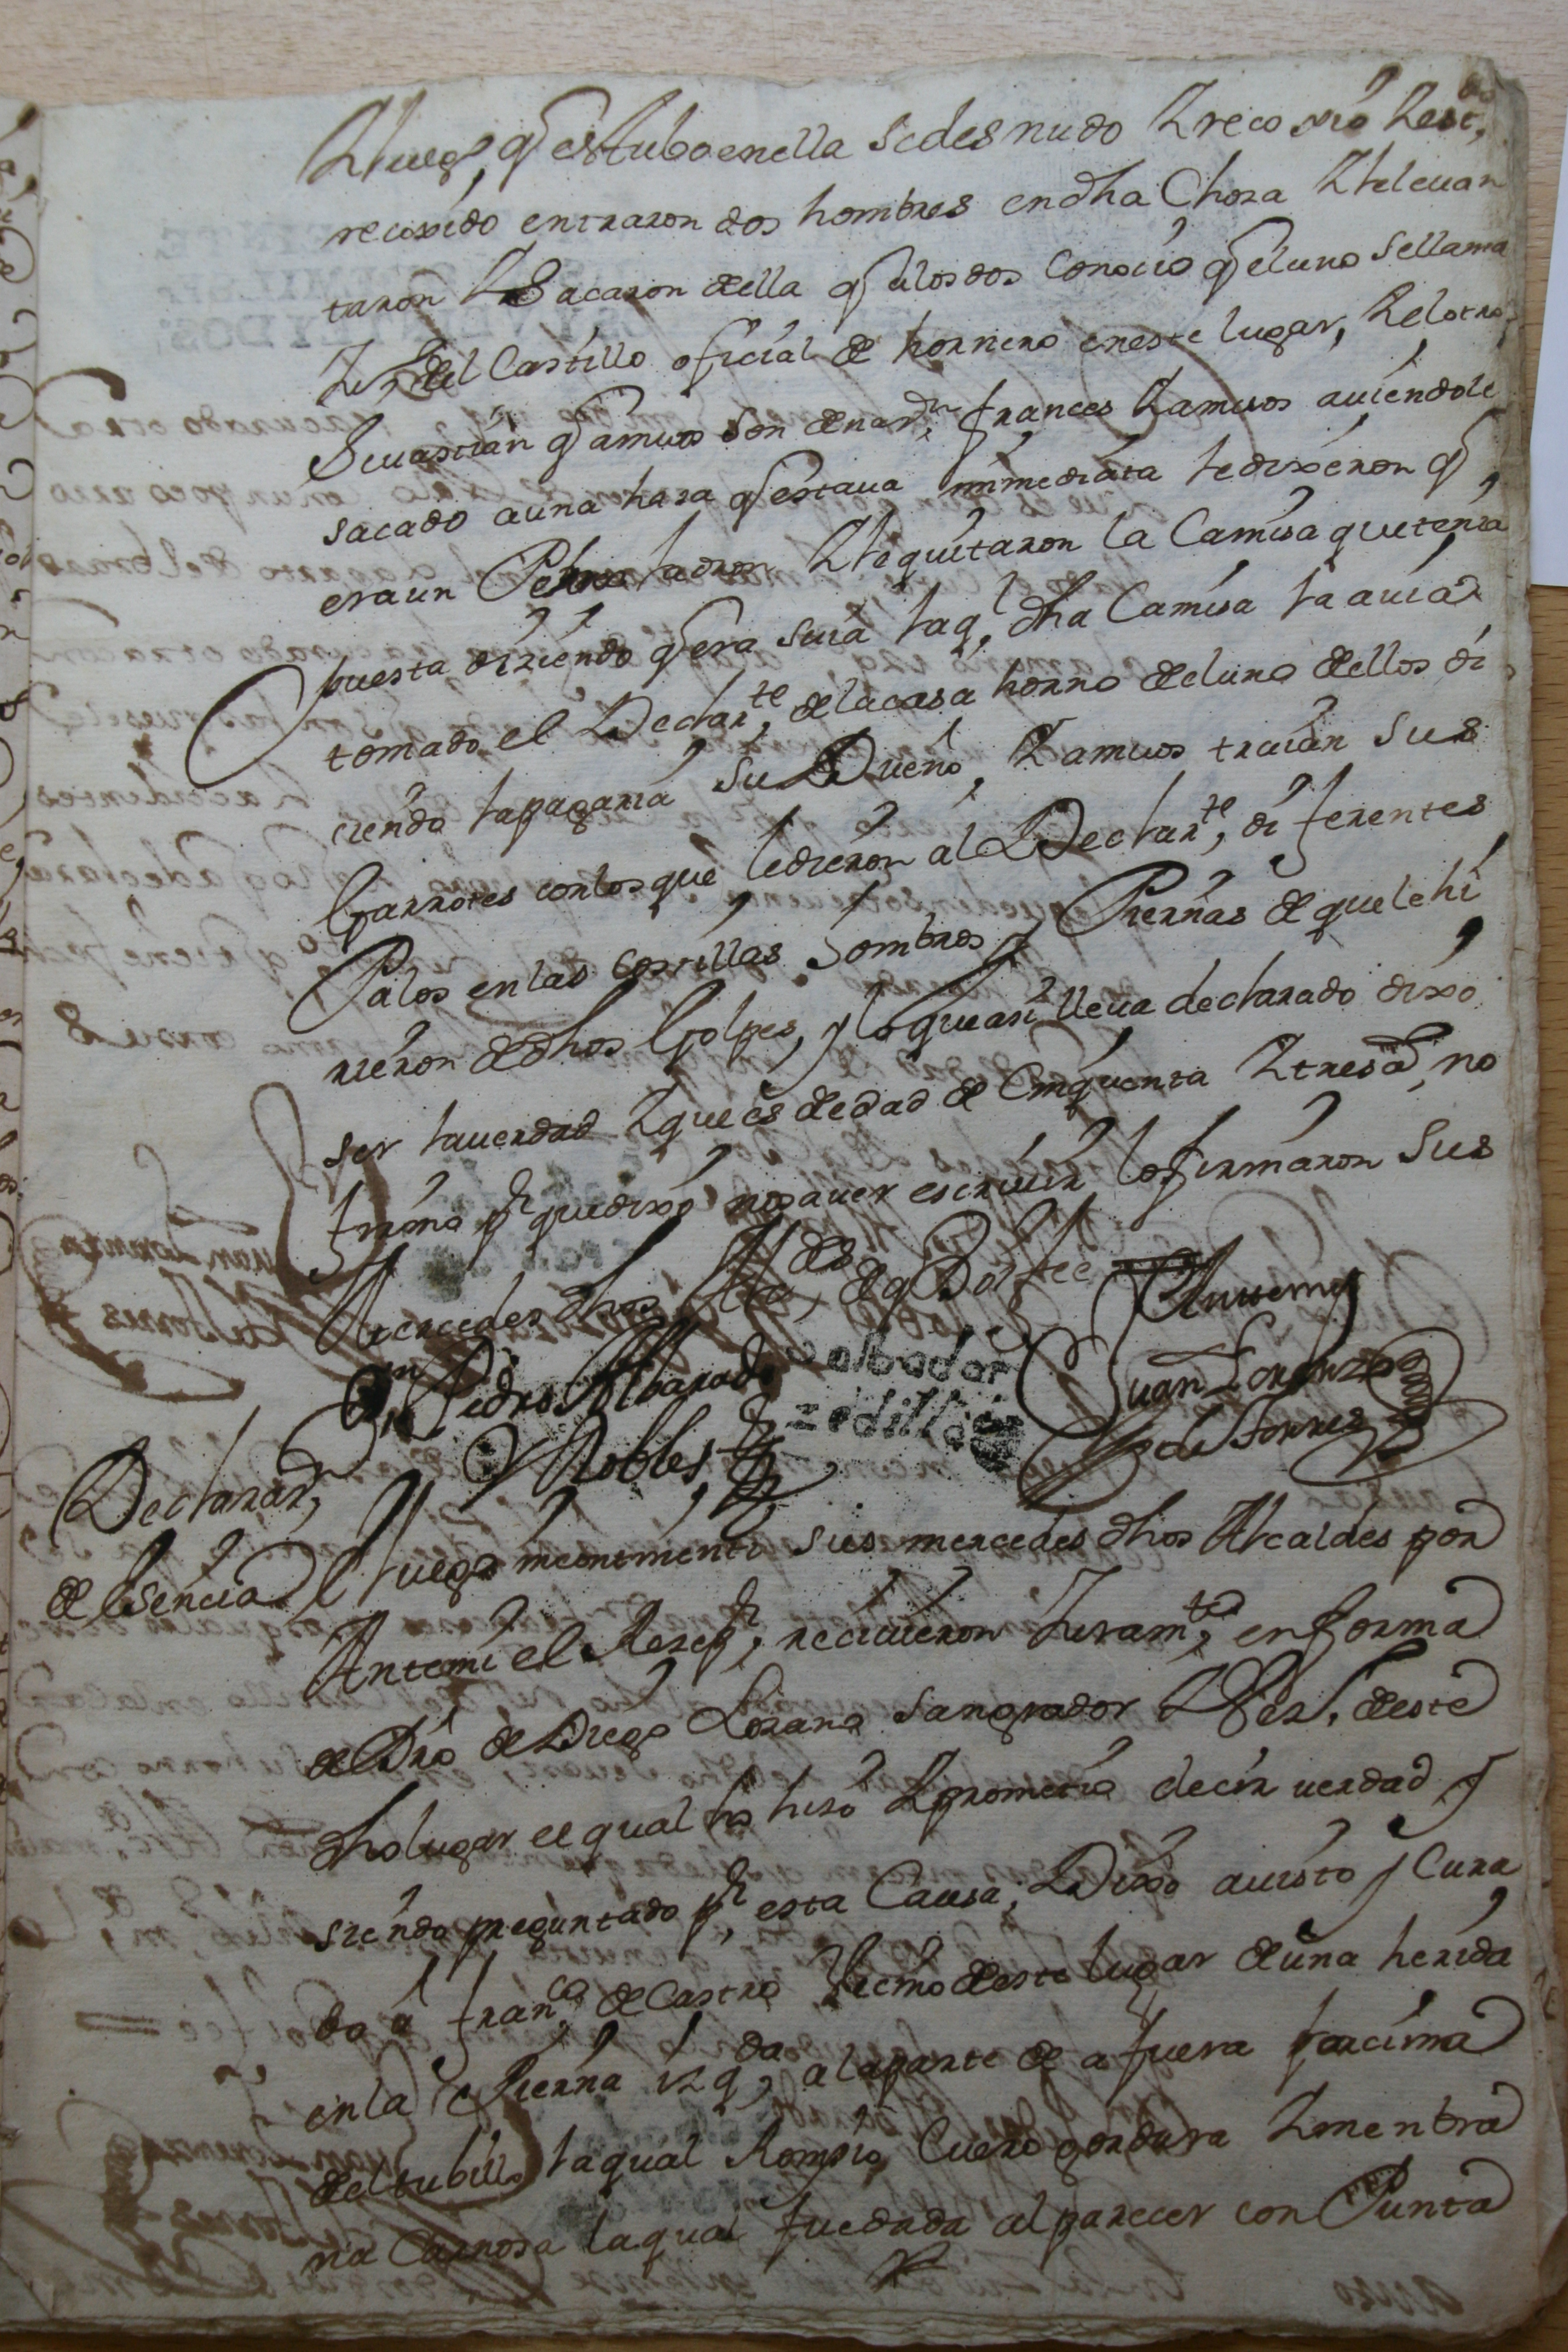 Y luego q estubo en ella se desnudo Y reco xio Y est,do
recoxido entraron dos hombres en dha Choza Y le leuan
taron Y Sacaron della q a los dos Conocio q el uno se llama
del Castillo oficial de hornero en este lugar, Y el otro
Seuastian q amuos son de naz.n frances Y amuos auiendole
sacado a una haza q estaua immediata le dixeron q
era un Perro ladron Y le quitaron la Camisa que tenia
puesta diziendo q era suia la q.l dha Camisa la auia
tomado el Declar.te de la casa horno del uno dellos di
ciendo la pagaria su Dueño, Y amuos traian sus
Garrotes con los que le dieron al Declar.te, diferentes
Palos en las costillas hombros y Piernas de que le hi
rieron de dhos Golpes, y lo que asi lleua declarado dixo
ser la uerdad Y que es de edad de Cinquenta Y tres a.s no
firmo p.r que dixo no sauer escriuir lo firmaron Sus
Mercedes dhos Alc.des de q Doi fee
Anttemy
D.n Pedro Albarado
Y Robles
salbador
zedillo
Juan Lorenzo
de Torres
Declaraz.n
de esencia
E luego incontinenti sus mercedes dhos Alcaldes por
Antemi el Rezep.r, reciuieron Juram.to, en forma
de Dro de Diego Lozano sangrador Y Vez.o deste
dho lugar el qual lo hizo Y prometio decir uerdad y
siendo preguntado p.r esta Causa, Dixo a uisto y Cura
do a Fran.co de Castro Vecino deste lugar de una herida
en la Pierna izq.da a la parte de afuera por cima
del tubillo la qual Rompio Cuero gordura Y menbra
na Carnosa la qual fue dada al parecer con Punta